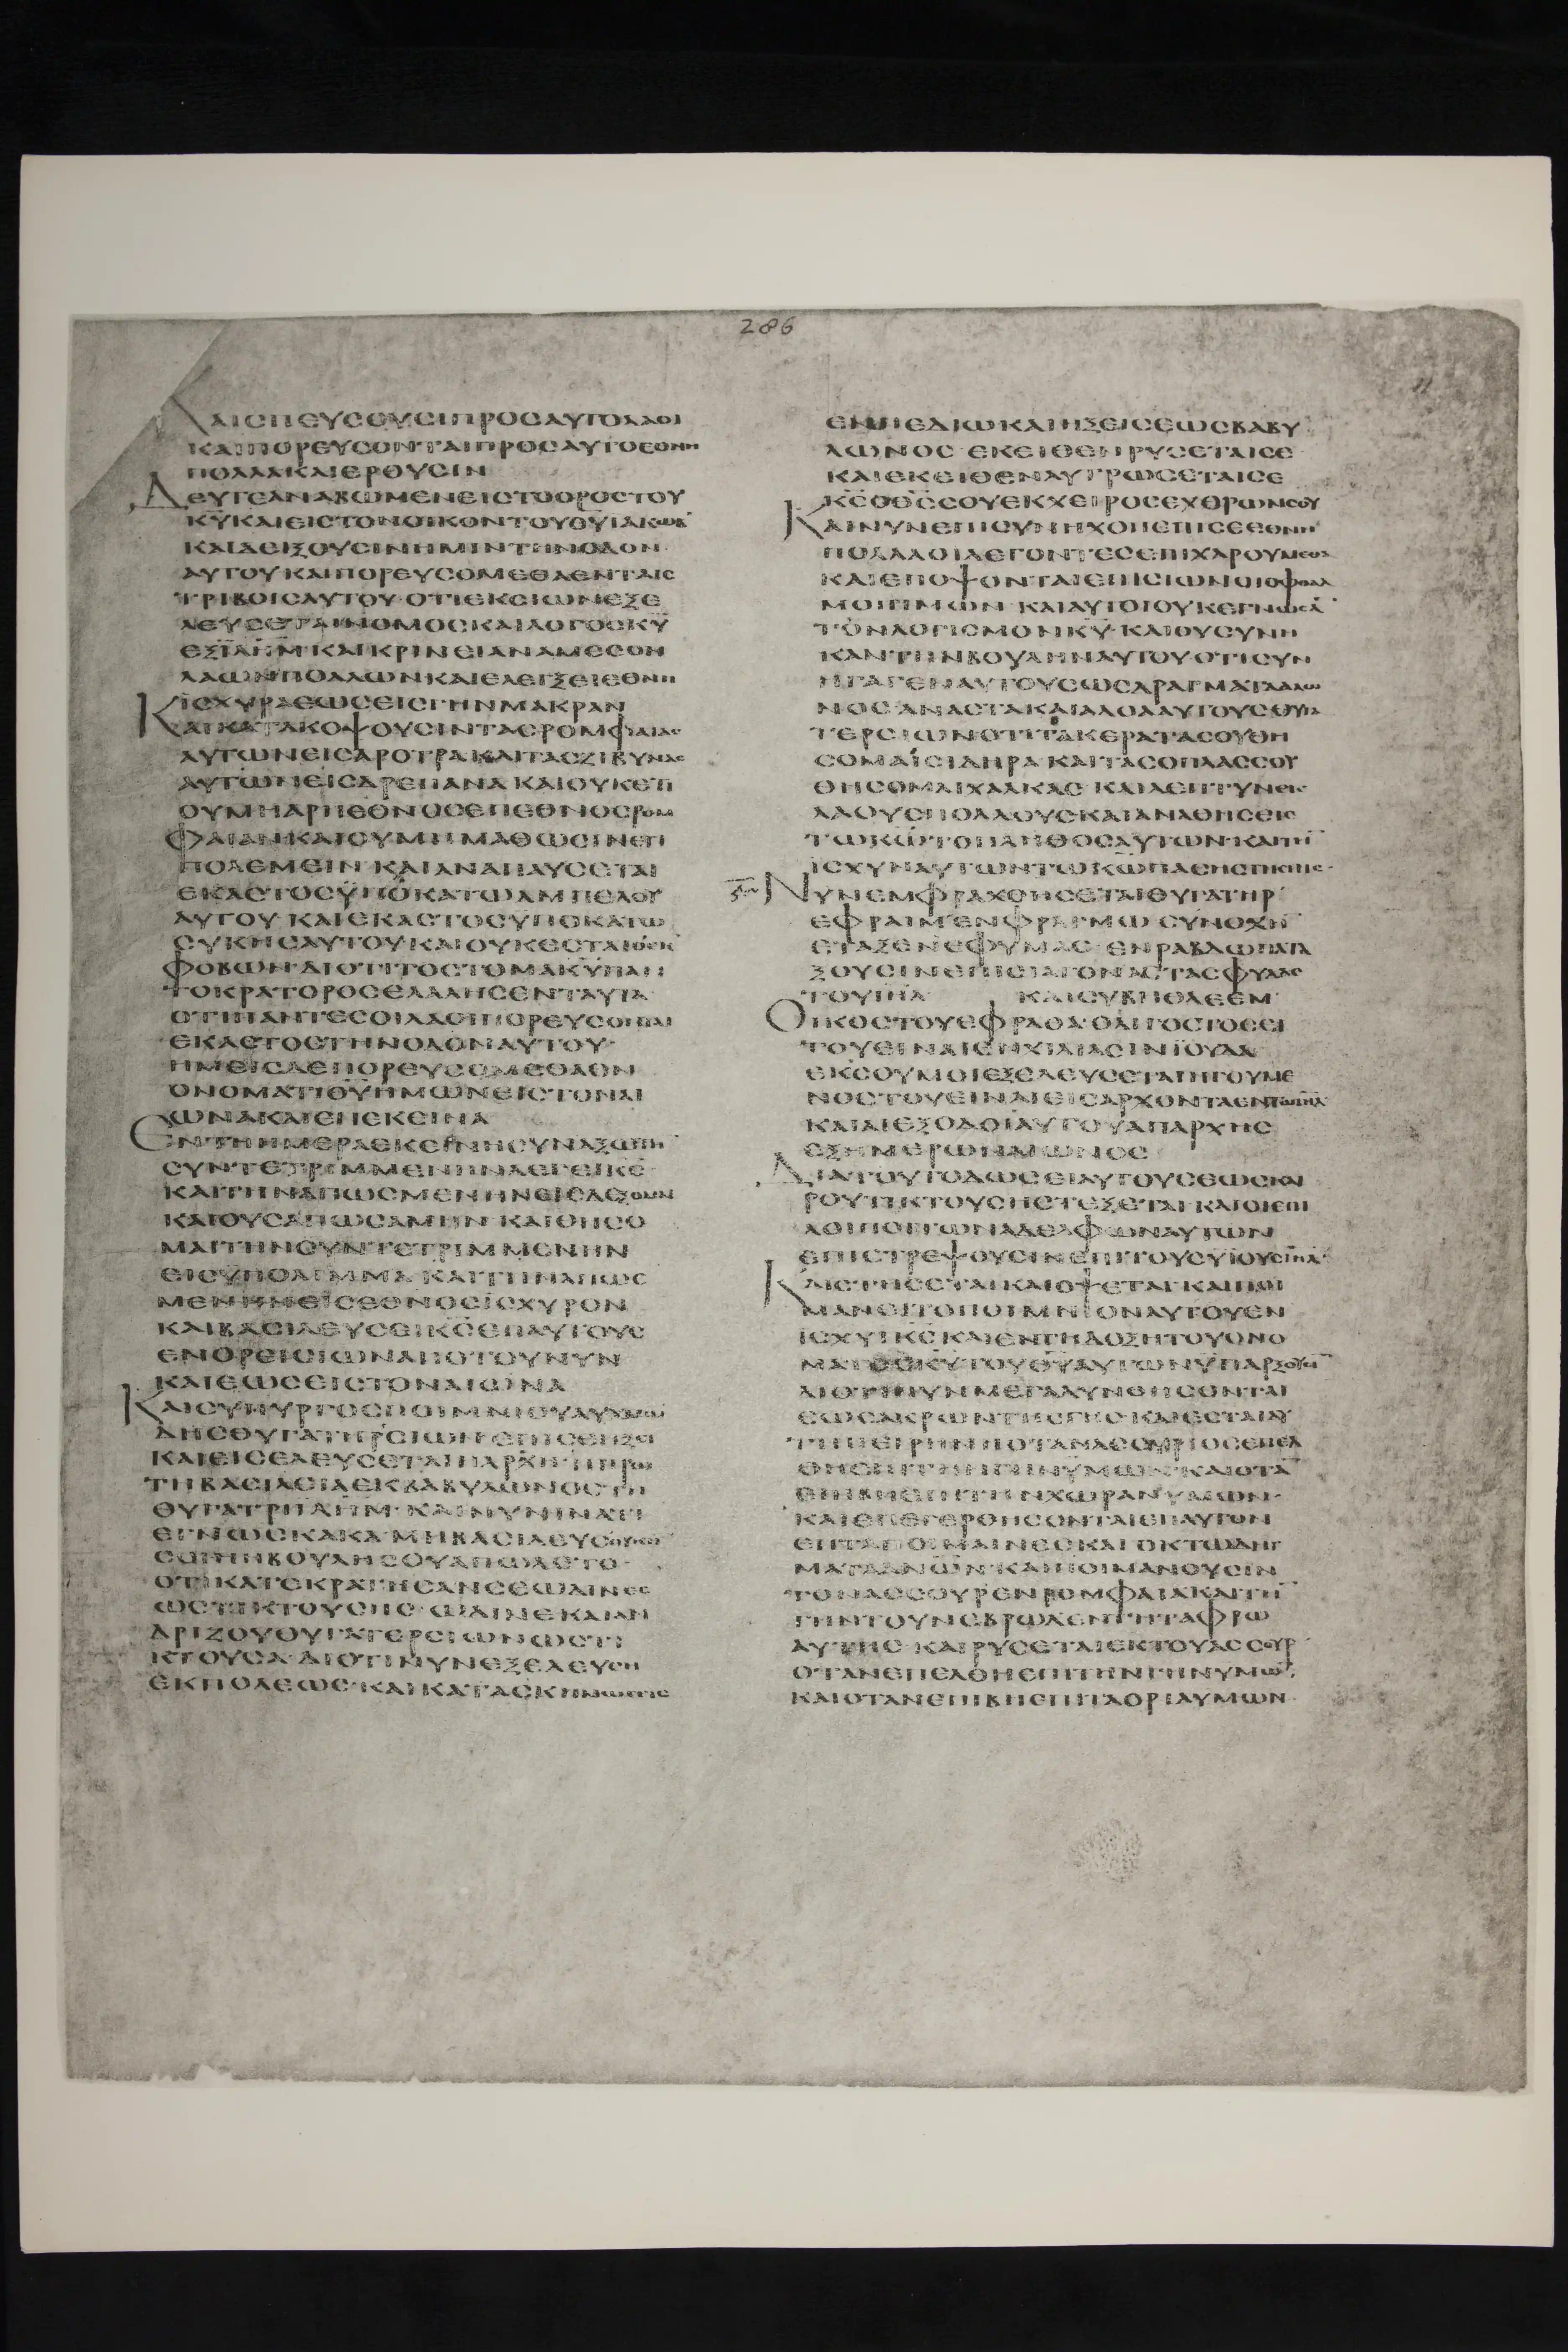 286
ΚΑΙ ΣΠΕΥΣΟΥΣΙ ΠΡΟΣ ΑΥΤΟ ΛΑΟΙ
ΚΑΙ ΠΟΡΕΥΣΟΝΤΑΙ ΠΡΟΣ ΑΥΤΟ ΕΘΝΗ
ΠΟΛΛΑ ΚΑΙ ΕΡΟΥΣΙΝ
ΔΕΥΤΕ ΑΝΑΒΩΜΕΝ ΕΙΣ ΤΟ ΟΡΟΣ ΤΟΥ
ΚΥ ΚΑΙ ΕΙΣ ΤΟΝ ΟΙΚΟΝ ΤΟΥ ΘΥ ΙΑΚΩΒ
ΚΑΙ ΔΕΙΞΟΥΣΙΝ ΗΜΙΝ ΤΗΝ ΟΔΟΝ
ΑΥΤΟΥ ΚΑΙ ΠΟΡΕΥΣΟΜΕΘΑ ΕΝ ΤΑΙΣ
ΤΡΙΒΟΙΣ ΑΥΤΟΥ ΟΤΙ ΕΚ ΣΙΩΝ ΕΞΕ
ΛΕΥΣΕΤΑΙ ΝΟΜΟΣ ΚΑΙ ΛΟΓΟΣ ΚΥ
ΕΞ ΙΛΗΜ ΚΑΙ ΚΡΙΝΕΙ ΑΝΑ ΜΕΣΟΝ
ΛΑΩΝ ΠΟΛΛΩΝ ΚΑΙ ΕΛΕΓΞΕΙ ΕΘΝΗ
ΙΣΧΥΡΑ ΕΩΣ ΕΙΣ ΓΗΝ ΜΑΚΡΑΝ
ΚΑΙ ΚΑΤΑΚΟΨΟΥΣΙΝ ΤΑΣ ΡΟΜΦΑΙΑΣ
ΑΥΤΩΝ ΕΙΣ ΑΡΟΤΡΑ ΚΑΙ ΤΑΣ ΖΙΒΥΝΑΣ
ΑΥΤΩΝ ΕΙΣ ΔΡΕΠΑΝΑ ΚΑΙ ΟΥΚΕΤΙ
ΟΥ ΜΗ ΑΡΗ ΕΘΝΟΣ ΕΠ ΕΘΝΟΣ ΡΟΜ
ΦΑΙΑΝ ΚΑΙ ΟΥ ΜΗ ΜΑΘΩΣΙΝ ΕΤΙ
ΠΟΛΕΜΕΙΝ ΚΑΙ ΑΝΑΠΑΥΣΕΤΑΙ
ΕΚΑΣΤΟΣ ΥΠΟΚΑΤΩ ΑΜΠΕΛΟΥ
ΑΥΤΟΥ ΚΑΙ ΕΚΑΣΤΟΣ ΥΠΟΚΑΤΩ
ΣΥΚΗΣ ΑΥΤΟΥ ΚΑΙ ΟΥΚ ΕΣΤΑΙ Ο ΕΚ
ΦΟΒΩΝ ΔΙΟΤΙ ΤΟ ΣΤΟΜΑ ΚΥ ΠΑΝ
ΤΟΚΡΑΤΟΡΟΣ ΕΛΑΛΗΣΕΝ ΤΑΥΤΑ
ΟΤΙ ΠΑΝΤΕΣ ΟΙ ΛΑΟΙ ΠΟΡΕΥΣΟΝΤΑΙ
ΕΚΑΣΤΟΣ ΤΗΝ ΟΔΟΝ ΑΥΤΟΥ
ΗΜΕΙΣ ΔΕ ΠΟΡΕΥΣΟΜΕΘΑ ΕΝ
ΟΝΟΜΑΤΙ ΘΥ ΗΜΩΝ ΕΙΣ ΤΟΝ ΑΙ
ΩΝΑ ΚΑΙ ΕΠΕΚΕΙΝΑ
ΕΝ ΤΗ ΗΜΕΡΑ ΕΚΕΙΝΗ ΣΥΝΑΞΩ ΤΗΝ
ΣΥΝΤΕΤΡΙΜΜΕΝΗΝ ΛΕΓΕΙ ΚΣ
ΚΑΙ ΤΗΝ ΑΠΩΣΜΕΝΗΝ ΕΙΣΔΕΞΟΜΑΙ
ΚΑΙ ΟΥΣ ΑΠΩΣΑΜΗΝ ΚΑΙ ΘΗΣΟ
ΜΑΙ ΤΗΝ ΣΥΝΤΕΤΡΙΜΜΕΝΗΝ
ΕΙΣ ΥΠΟΛΙΜΜΑ ΚΑΙ ΤΗΝ ΑΠΩΣ
ΜΕΝΗΝ ΕΙΣ ΕΘΝΟΣ ΙΣΧΥΡΟΝ
ΚΑΙ ΒΑΣΙΛΕΥΣΕΙ ΚΣ ΕΠ ΑΥΤΟΥΣ
ΕΝ ΟΡΕΙ ΣΙΩΝ ΑΠΟ ΤΟΥ ΝΥΝ
ΚΑΙ ΕΩΣ ΕΙΣ ΤΟΝ ΑΙΩΝΑ
ΚΑΙ ΣΥ ΠΥΡΓΟΣ ΠΟΙΜΝΙΟΥ ΑΥΧΜΩ
ΔΗΣ ΘΥΓΑΤΗΡ ΣΙΩΝ ΕΠΙ ΣΕ ΗΞΕΙ
ΚΑΙ ΕΙΣΕΛΕΥΣΕΤΑΙ Η ΑΡΧΗ Η ΠΡΩ
ΤΗ ΒΑΣΙΛΕΙΑ ΕΚ ΒΑΒΥΛΩΝΟΣ ΤΗ
ΘΥΓΑΤΡΙ ΙΛΗΜ ΚΑΙ ΝΥΝ ΙΝΑ ΤΙ
ΕΓΝΩΣ ΚΑΚΑ ΜΗ ΒΑΣΙΛΕΥΣ ΟΥΚ ΗΝ
ΣΟΙ Η Η ΒΟΥΛΗ ΣΟΥ ΑΠΩΛΕΤΟ
ΟΤΙ ΚΑΤΕΚΡΑΤΗΣΑΝ ΣΕ ΩΔΙΝΕΣ
ΩΣ ΤΙΚΤΟΥΣΗΣ ΩΔΙΝΕ ΚΑΙ ΑΝ
ΔΡΙΖΟΥ ΘΥΓΑΤΕΡ ΣΙΩΝ ΩΣ ΤΙ
ΚΤΟΥΣΑ ΔΙΟΤΙ ΝΥΝ ΕΞΕΛΕΥΣΗ
ΕΚ ΠΟΛΕΩΣ ΚΑΙ ΚΑΤΑΣΚΗΝΩΣΕΙΣ
ΕΝ ΠΕΔΙΩ ΚΑΙ ΗΞΕΙΣ ΕΩΣ ΒΑΒΥ
ΛΩΝΟΣ ΕΚΕΙΘΕΝ ΡΥΣΕΤΑΙ ΣΕ
ΚΑΙ ΕΚΕΙΘΕΝ ΛΥΤΡΩΣΕΤΑΙ ΣΕ
ΚΣ Ο ΘΣ ΣΟΥ ΕΚ ΧΕΙΡΟΣ ΕΧΘΡΩΝ ΣΟΥ
ΚΑΙ ΝΥΝ ΕΠΙΣΥΝΗΧΘΗ ΕΠΙ ΣΕ ΕΘΝΗ
ΠΟΛΛΑ ΟΙ ΛΕΓΟΝΤΕΣ ΕΠΙΧΑΡΟΥΜΕΘΑ
ΚΑΙ ΕΠΟΨΟΝΤΑΙ ΕΠΙ ΣΙΩΝ ΟΙ ΟΦΘΑΛ
ΜΟΙ ΗΜΩΝ ΚΑΙ ΑΥΤΟΙ ΟΥΚ ΕΓΝΩΣΑ
ΤΟΝ ΛΟΓΙΣΜΟΝ ΚΥ ΚΑΙ ΟΥ ΣΥΝΗ
ΚΑΝ ΤΗΝ ΒΟΥΛΗΝ ΑΥΤΟΥ ΟΤΙ ΣΥΝ
ΗΓΑΓΕΝ ΑΥΤΟΥΣ ΩΣ ΔΡΑΓΜΑΤΑ ΑΛΩ
ΝΟΣ ΑΝΑΣΤΑ ΚΑΙ ΑΛΟΑ ΑΥΤΟΥΣ ΘΥΓΑ
ΤΕΡ ΣΙΩΝ ΟΤΙ ΤΑ ΚΕΡΑΤΑ ΣΟΥ ΘΗ
ΣΟΜΑΙ ΣΙΔΗΡΑ ΚΑΙ ΤΑΣ ΟΠΛΑΣ ΣΟΥ
ΘΗΣΟΜΑΙ ΧΑΛΚΑΣ ΚΑΙ ΛΕΠΤΥΝΕΙΣ
ΛΑΟΥΣ ΠΟΛΛΟΥΣ ΚΑΙ ΑΝΑΘΗΣΕΙΣ
ΤΩ ΚΩ ΤΟ ΠΛΗΘΟΣ ΑΥΤΩΝ ΚΑΙ ΤΗΝ
ΙΣΧΥΝ ΑΥΤΩΝ ΤΩ ΚΩ ΠΑΣΗΣ ΤΗΣ ΓΗΣ
ΝΥΝ ΕΜΦΡΑΧΘΗΣΕΤΑΙ ΘΥΓΑΤΗΡ
ΕΦΡΑΙΜ ΕΝ ΦΡΑΓΜΩ ΣΥΝΟΧΗ
ΕΤΑΞΕΝ ΕΦ ΥΜΑΣ ΕΝ ΡΑΒΔΩ ΠΑΤΑ
ΞΟΥΣΙΝ ΕΠΙ ΣΙΑΓΟΝΑΣ ΤΑΣ ΦΥΛΑΣ
ΤΟΥ ΙΗΛ ΚΑΙ ΣΥ ΒΗΘΛΕΕΜ
ΟΙΚΟΣ ΤΟΥ ΕΦΡΑΘΑ ΟΛΙΓΟΣΤΟΣ ΕΙ
ΤΟΥ ΕΙΝΑΙ ΕΝ ΧΙΛΙΑΣΙΝ ΙΟΥΔΑ
ΕΚ ΣΟΥ ΜΟΙ ΕΞΕΛΕΥΣΕΤΑΙ ΗΓΟΥΜΕ
ΝΟΣ ΤΟΥ ΕΙΝΑΙ ΕΙΣ ΑΡΧΟΝΤΑ ΕΝ ΤΩ ΙΗΛ
ΚΑΙ ΑΙ ΕΞΟΔΟΙ ΑΥΤΟΥ ΑΠ ΑΡΧΗΣ
ΕΞ ΗΜΕΡΩΝ ΑΙΩΝΟΣ
ΔΙΑ ΤΟΥΤΟ ΔΩΣΕΙ ΑΥΤΟΥΣ ΕΩΣ ΚΑΙ
ΡΟΥ ΤΙΚΤΟΥΣΗΣ ΤΕΞΕΤΑΙ ΚΑΙ ΟΙ ΕΠΙ
ΛΟΙΠΟΙ ΤΩΝ ΑΔΕΛΦΩΝ ΑΥΤΩΝ
ΕΠΙΣΤΡΕΨΟΥΣΙΝ ΕΠΙ ΤΟΥΣ ΥΙΟΥΣ ΙΗΛ
ΚΑΙ ΣΤΗΣΕΤΑΙ ΚΑΙ ΟΨΕΤΑΙ ΚΑΙ ΠΟΙ
ΜΑΝΕΙ ΤΟ ΠΟΙΜΝΙΟΝ ΑΥΤΟΥ ΕΝ
ΙΣΧΥΙ ΚΣ ΚΑΙ ΕΝ ΤΗ ΔΟΞΗ ΤΟΥ ΟΝΟ
ΜΑΤΟΣ ΚΥ ΤΟΥ ΘΥ ΑΥΤΩΝ ΥΠΑΡΞΟΥΣΙ
ΔΙΟΤΙ ΝΥΝ ΜΕΓΑΛΥΝΘΗΣΟΝΤΑΙ
ΕΩΣ ΑΚΡΩΝ ΤΗΣ ΓΗΣ ΚΑΙ ΕΣΤΑΙ ΑΥ
ΤΗ Η ΕΙΡΗΝΗ ΟΤΑΝ ΑΣΣΥΡΙΟΣ ΕΠΕΛ
ΘΗ ΕΠΙ ΤΗΝ ΓΗΝ ΥΜΩΝ ΚΑΙ ΟΤΑΝ
ΕΠΙΒΗ ΕΠΙ ΤΗΝ ΧΩΡΑΝ ΥΜΩΝ
ΚΑΙ ΕΠΕΓΕΡΘΗΣΟΝΤΑΙ ΕΠ ΑΥΤΟΝ
ΕΠΤΑ ΠΟΙΜΑΙΝΕΣ ΚΑΙ ΟΚΤΩ ΔΗΓ
ΜΑΤΑ ΑΝΩΝ ΚΑΙ ΠΟΙΜΑΝΟΥΣΙΝ
ΤΟΝ ΑΣΣΟΥΡ ΕΝ ΡΟΜΦΑΙΑ ΚΑΙ ΤΗΝ
ΓΗΝ ΤΟΥ ΝΕΒΡΩΔ ΕΝ ΤΗ ΤΑΦΡΩ
ΑΥΤΗΣ ΚΑΙ ΡΥΣΕΤΑΙ ΕΚ ΤΟΥ ΑΣΣΟΥΡ
ΟΤΑΝ ΕΠΕΛΘΗ ΕΠΙ ΤΗΝ ΓΗΝ ΥΜΩΝ
ΚΑΙ ΟΤΑΝ ΕΠΙΒΗ ΕΠΙ ΤΑ ΟΡΙΑ ΥΜΩΝ